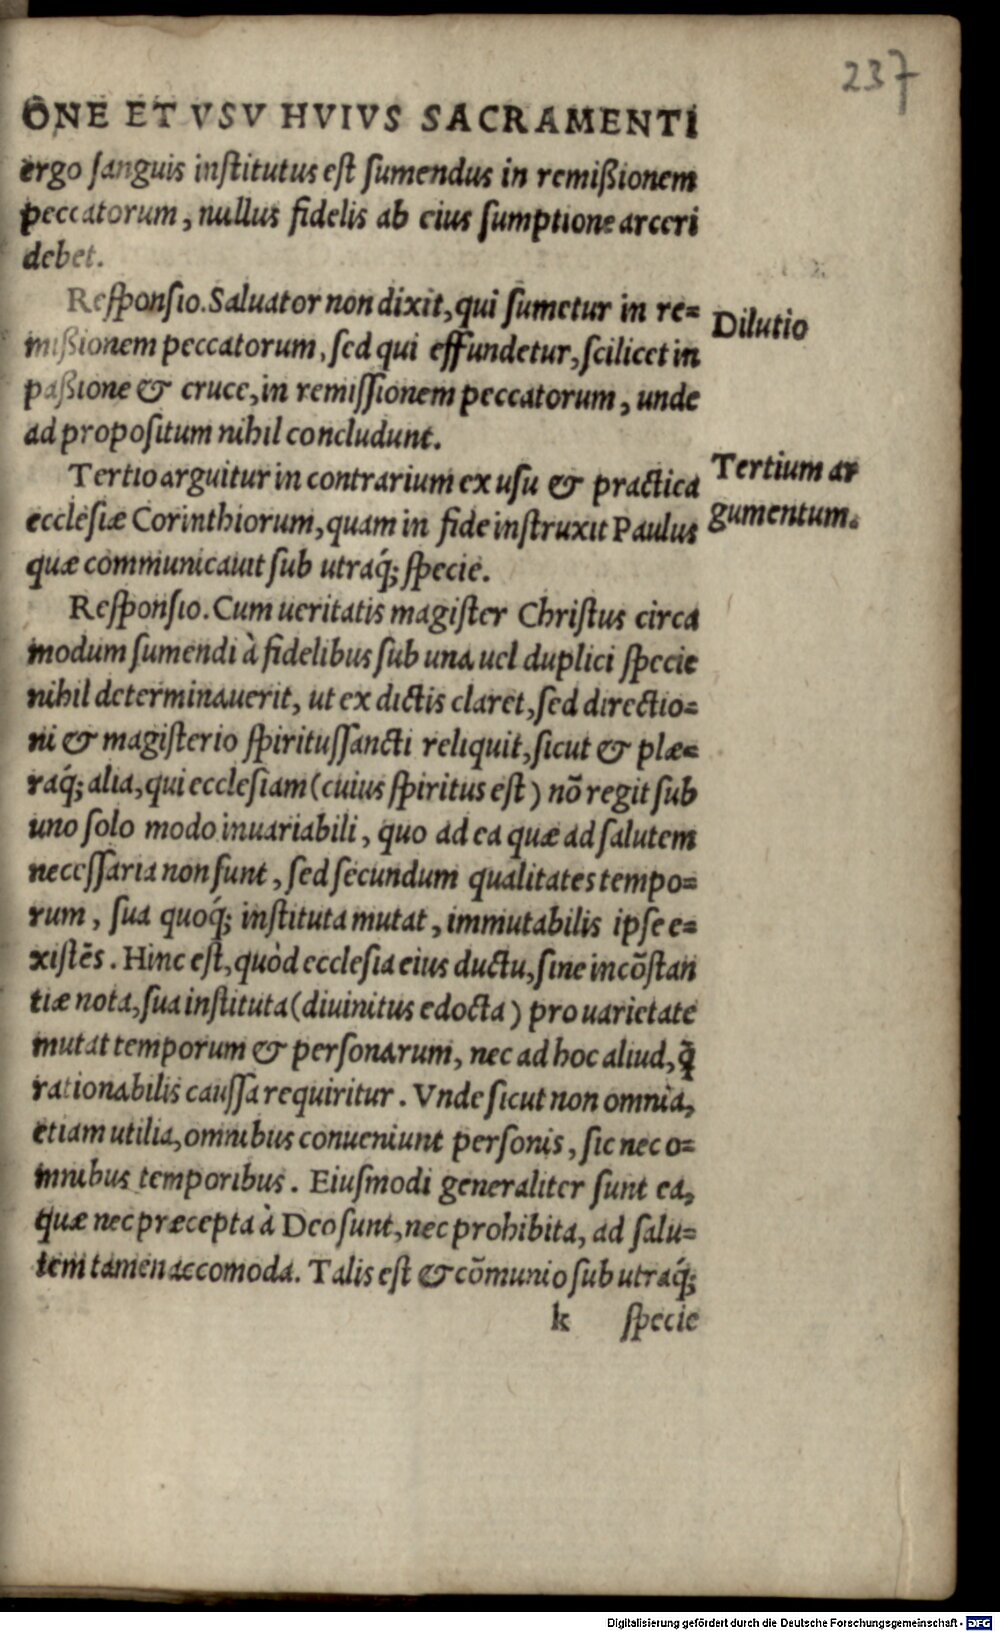 237
ONE ET VSV HVIVS SACRAMENTI
ergo ſanguis inſtitutus eſt ſumendus in remißionem
peccatorum, nullus fidelis ab eius ſumptione arceri
debet.
Reſponſio. Saluator non dixit, qui ſumetur in re=
mißionem peccatorum, ſed qui effundetur, ſcilicet in
paßione & cruce, in remiſſionem peccatorum, unde
ad propoſitum nihil concludunt.
Dilutio
Tertio arguitur in contrarium ex uſu & practica
eccleſiæ Corinthiorum, quam in fide inſtruxit Paulus
quæ communicauit ſub utraq́; ſpecie.
Tertium ar
gumentum.
Reſponſio. Cum ueritatis magiſter Chriſtus circa
modum ſumendi à fidelibus ſub una uel duplici ſpecie
nihil determinauerit, ut ex dictis claret, ſed directio=
ni & magiſterio ſpirituſſancti reliquit, ſicut & plæ=
raq́; alia, qui eccleſiam (cuius ſpiritus eſt) nõ regit ſub
uno ſolo modo inuariabili, quo ad ea quæ ad ſalutem
neceſſaria non ſunt, ſed ſecundum qualitates tempo=
rum, ſua quoq́; inſtituta mutat, immutabilis ipſe e=
xiſtẽs. Hinc eſt, quòd eccleſia eius ductu, ſine incõſtan
tiæ nota, ſua inſtituta (diuinitus edocta) pro uarietate
mutat temporum & perſonarum, nec ad hoc aliud, q̃
rationabilis cauſſa requiritur. Vnde ſicut non omnia,
etiam utilia, omnibus conueniunt perſonis, ſic nec o=
mnibus temporibus. Eiuſmodi generaliter ſunt ea,
quæ nec præcepta à Deo ſunt, nec prohibita, ad ſalu=
tem tamen accomoda. Talis eſt & cõmunio ſub utraq́;
k ſpecie
Digitalisierung gefördert durch die Deutsche Forschungsgemeinschaft - DFG